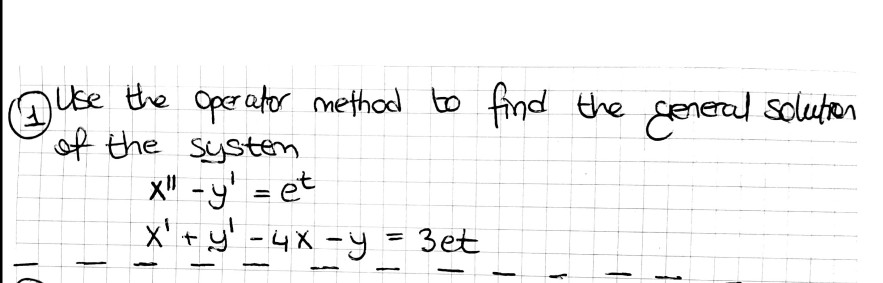 ① Use the operator method to find the general solution
of the system
x'' - y' = e^t
x' + y' - 4x - y = 3et